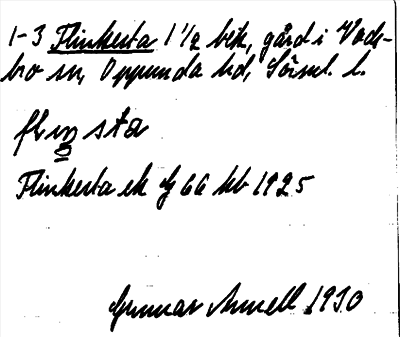 1-3 Flinkesta 1 1/2 bek, gård i Vads-
bro sn, Oppunda hd, Sörml. l.
fliŋsta
Flinkesta ek G 66 kb 1925
Gunnar Arnell 1930